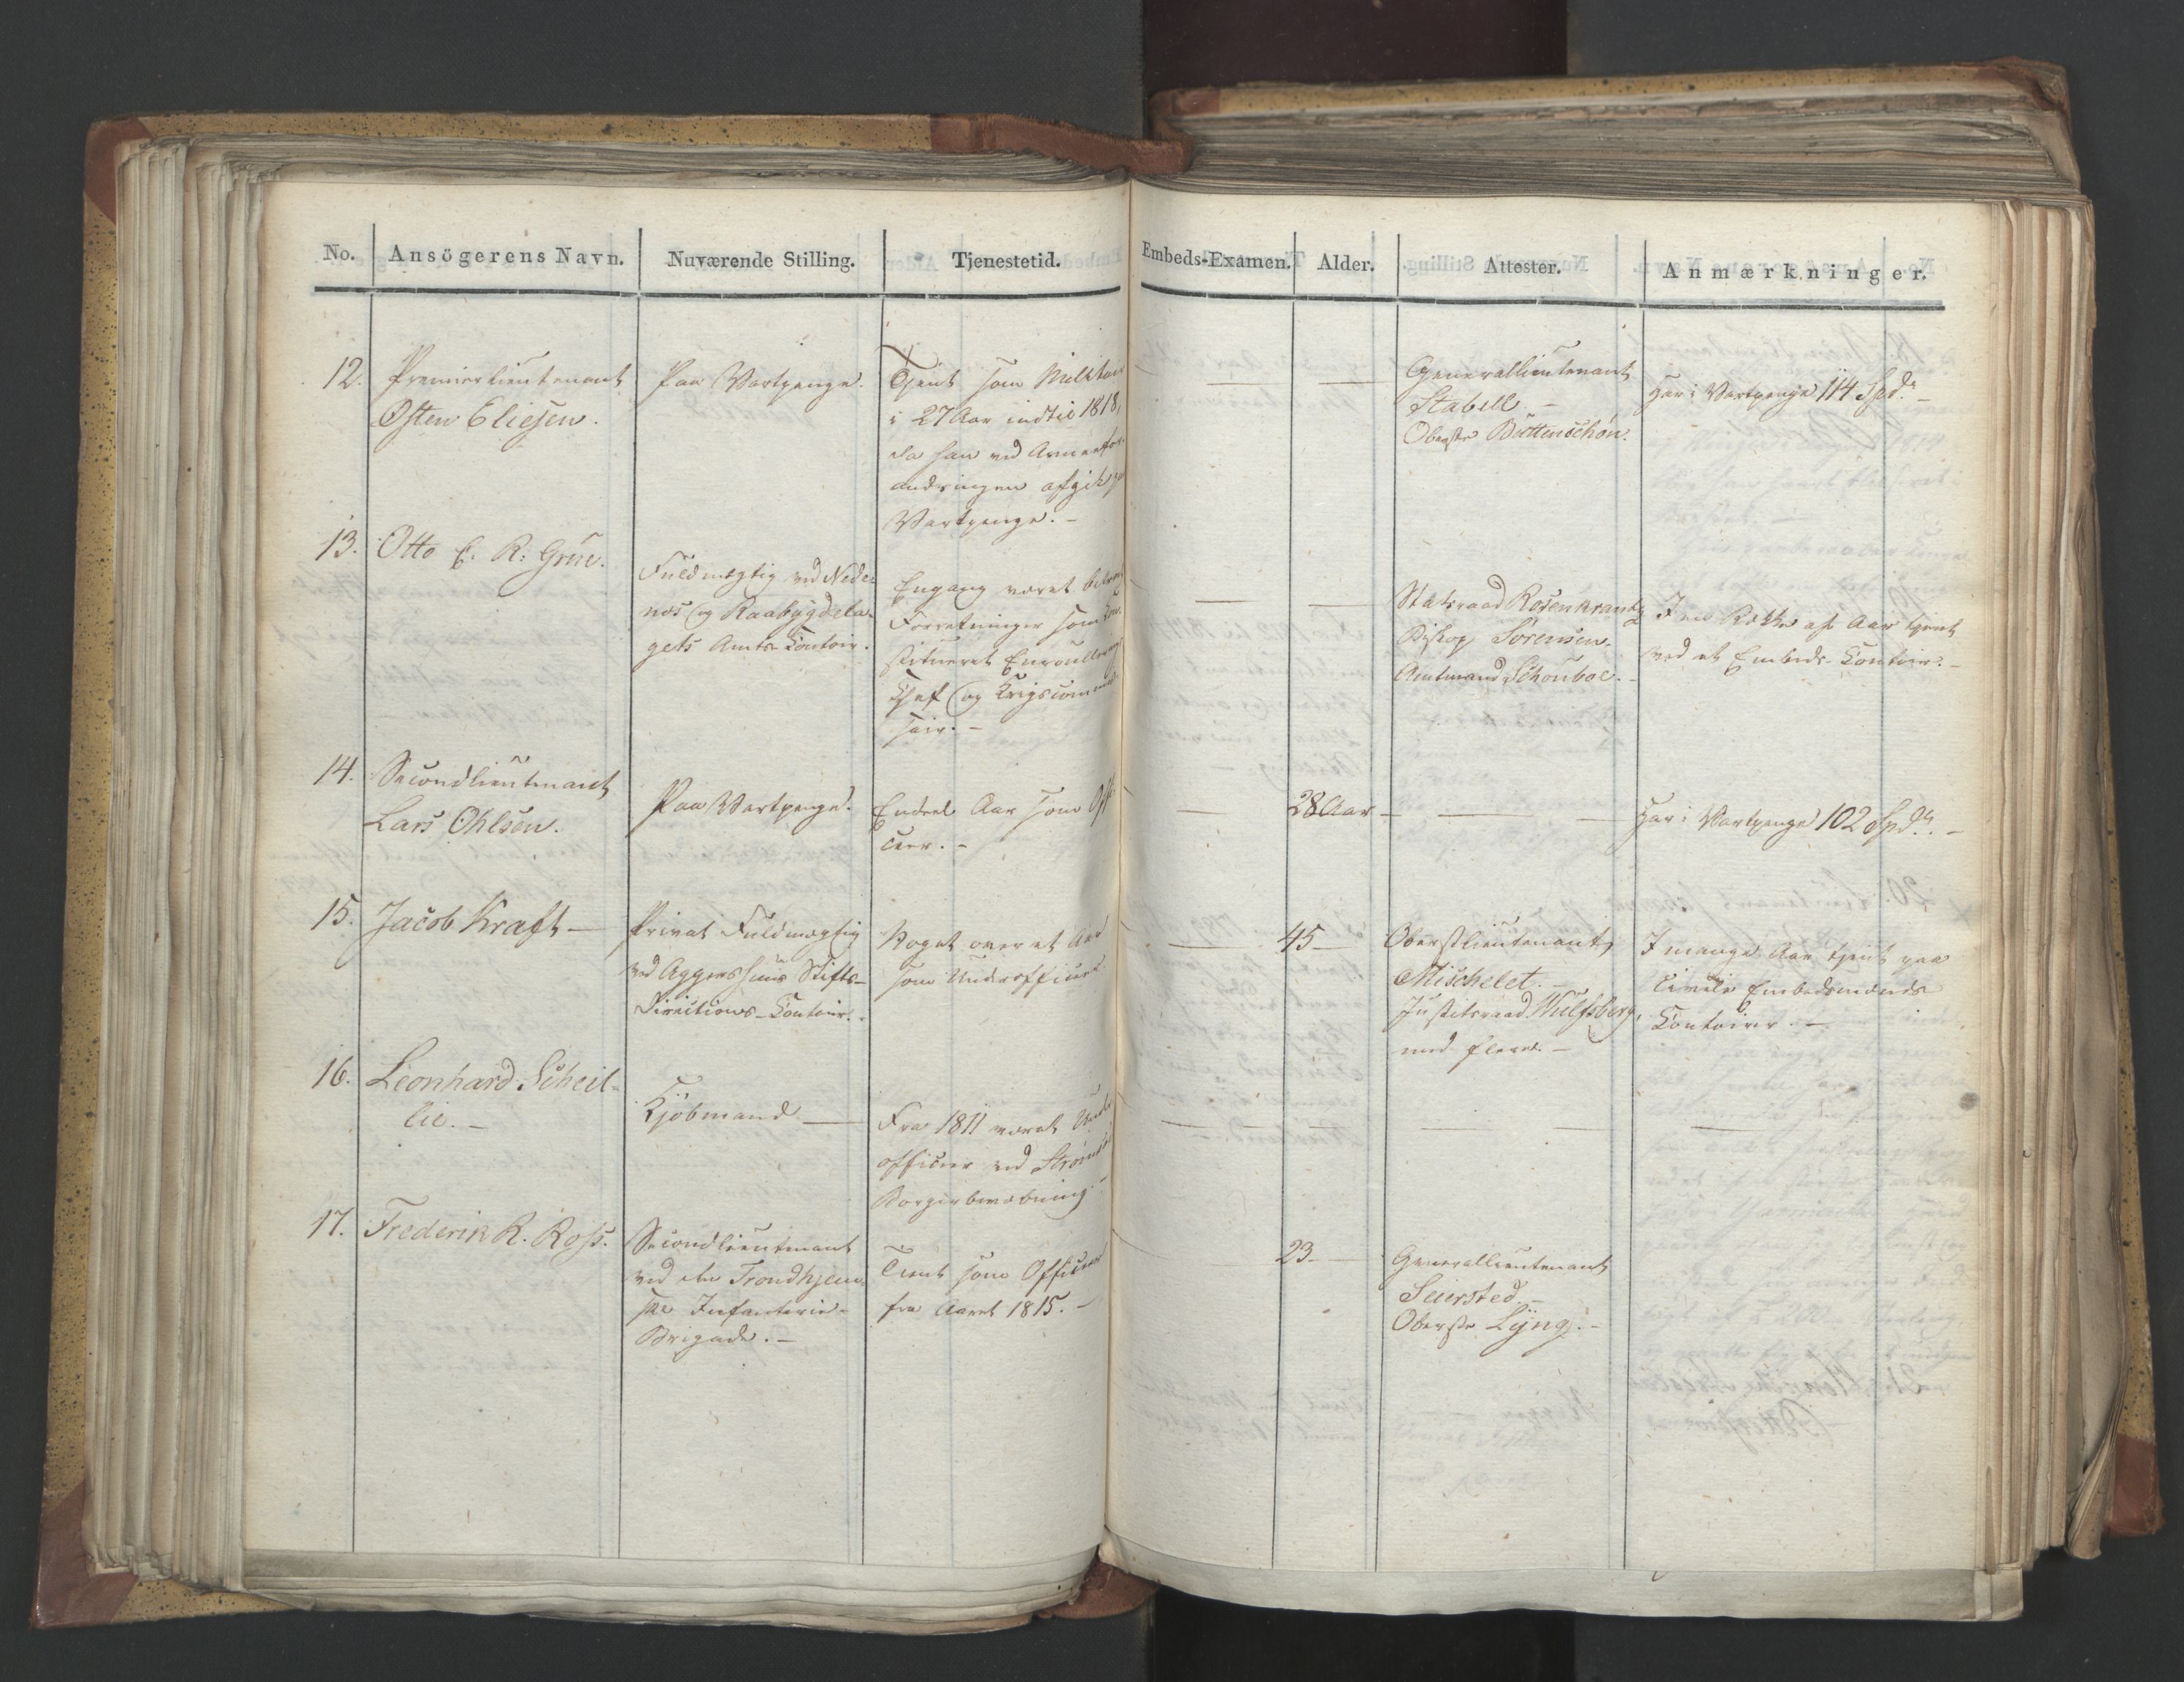 No.
Ansögerens Navn.
Nuværende Stilling.
Tjenestetid.
Embeds-Examen.
Alder.
Attester.
Anmærkninger.
12.
Premierlieutenant
Osten Eliesen.
Paa Vartpenge.
Tjent som Militair
i 27 Aar indtil 1818,
da han ved Armeefor-
andringen afgik paa
Vartpenge. -
Generallieutenant
Stabell. -
Oberste Büttenschön.
Har i Vartpenge 114 Spdr. -
13.
Otto E. R. Grüe.
Fuldmægtig ved Nede-
næs og Raabygdela-
gets Amts-Contoir.
Engang været
Forretninger som Con-
stitueret Enroullerings
Chef og Krigscommis-
sair. -
Statsraad Rosenkrantz
Biskop Sörensen.
Amtmand Schouboe. -
I en Række af Aar tjent
ved et Embeds-Contoir. -
14.
Secondlieutenant
Lars Ohlsen.
Paa Vartpenge.
Endeel Aar som Offi-
ceer. -
28 Aar -
Har i Vartpenge 102 Spdr. -
15.
Jacob Kraft -
Privat Fuldmægtig
ved Aggershuus Stifts-
Directions-Contoir. -
Noget over et Aar
som Underofficeer
45 -
Oberstlieutenant
Mischelet. -
Justitsraad Wulfsberg,
med flere. -
I mange Aar tjent paa
civile Embedsmænds
Contoirer. -
16.
Leonhard Scheit-
lie. -
Kjöbmand -
Fra 1811 været Under
officeer ved Strömsö
Borgerbevæbning. -
17.
Frederik R. Ross.
Secondlieutenant
ved den Trondhjem-
ske Infanterie-
Brigade. -
Tient som Officeer
fra Aaret 1815. -
23 -
Generallieutenant
Seiersted. -
Oberste Lÿng. -